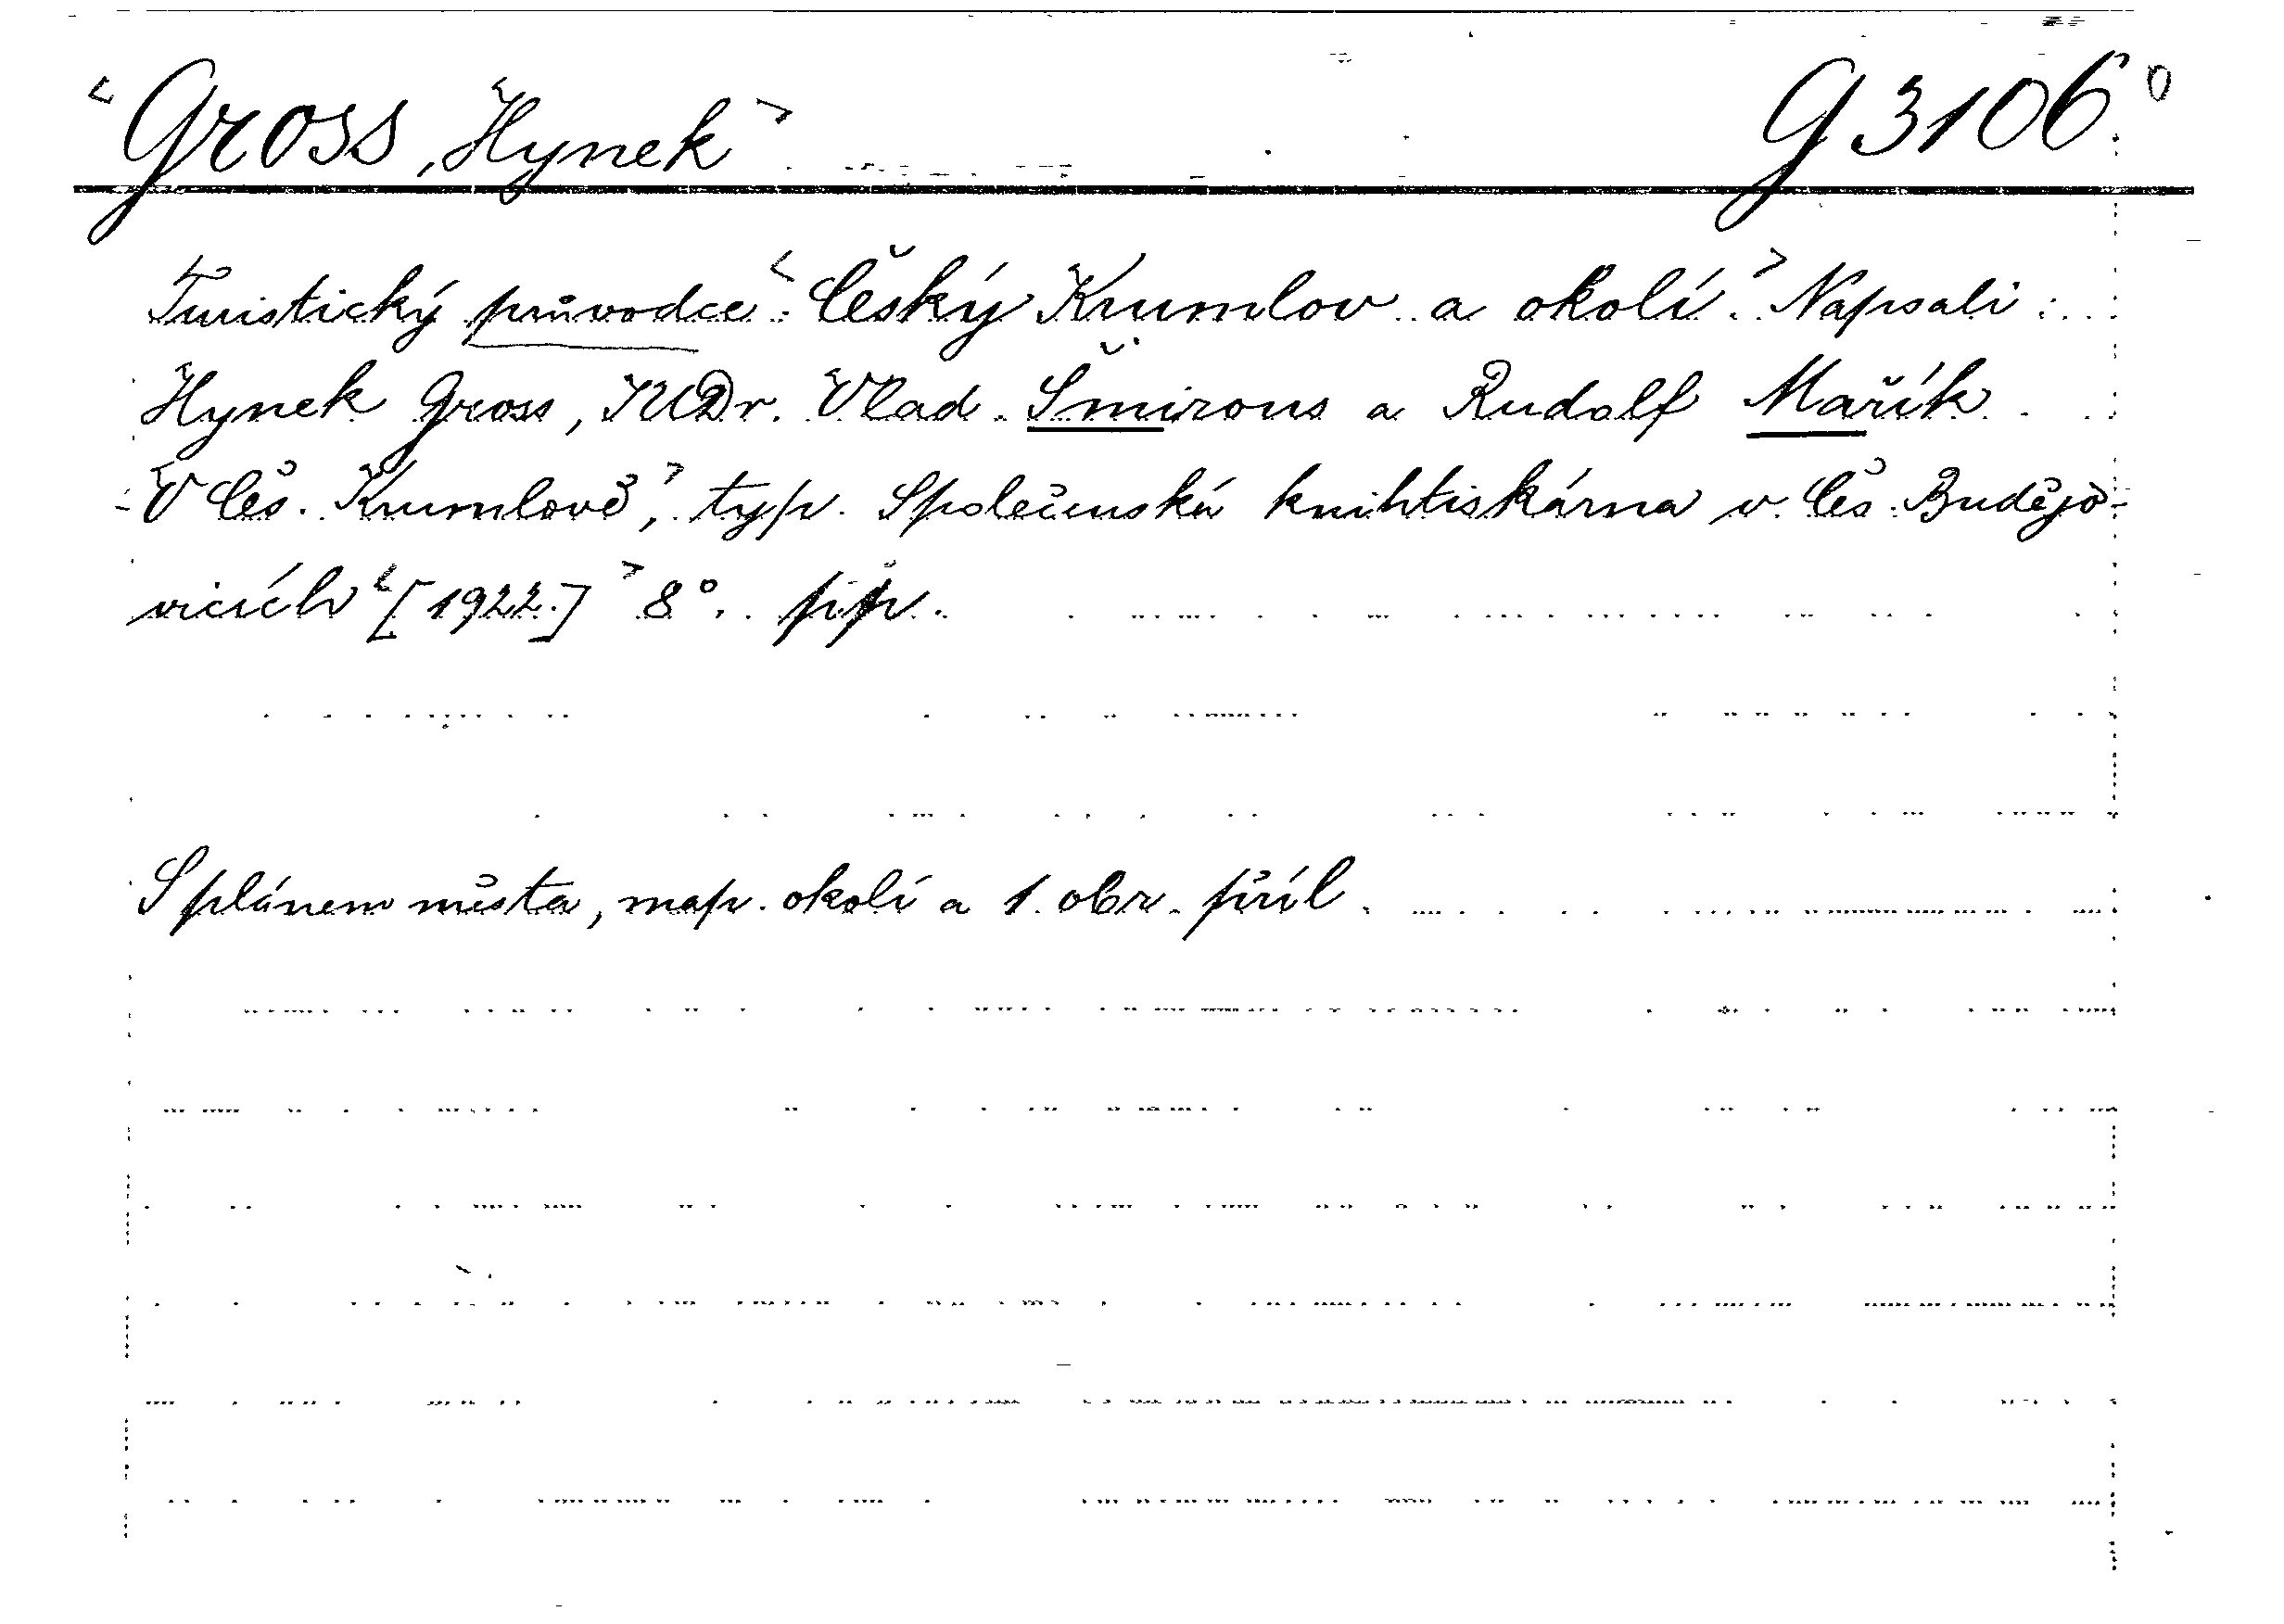 "Gross, Hynek" G 3106.0
Turistický průvodce "Český Krumlov a okolí." Napsali:
Hynek Gross, JUDr. Vlad. Šmirous a Rudolf Mařík.
V Čes. Krumlově, typ. Společenská knihtiskárna v Čes. Budějo-
vicích [1922.] 8°. pp.
S plánem města, map. okolí a 1. obr. příl.